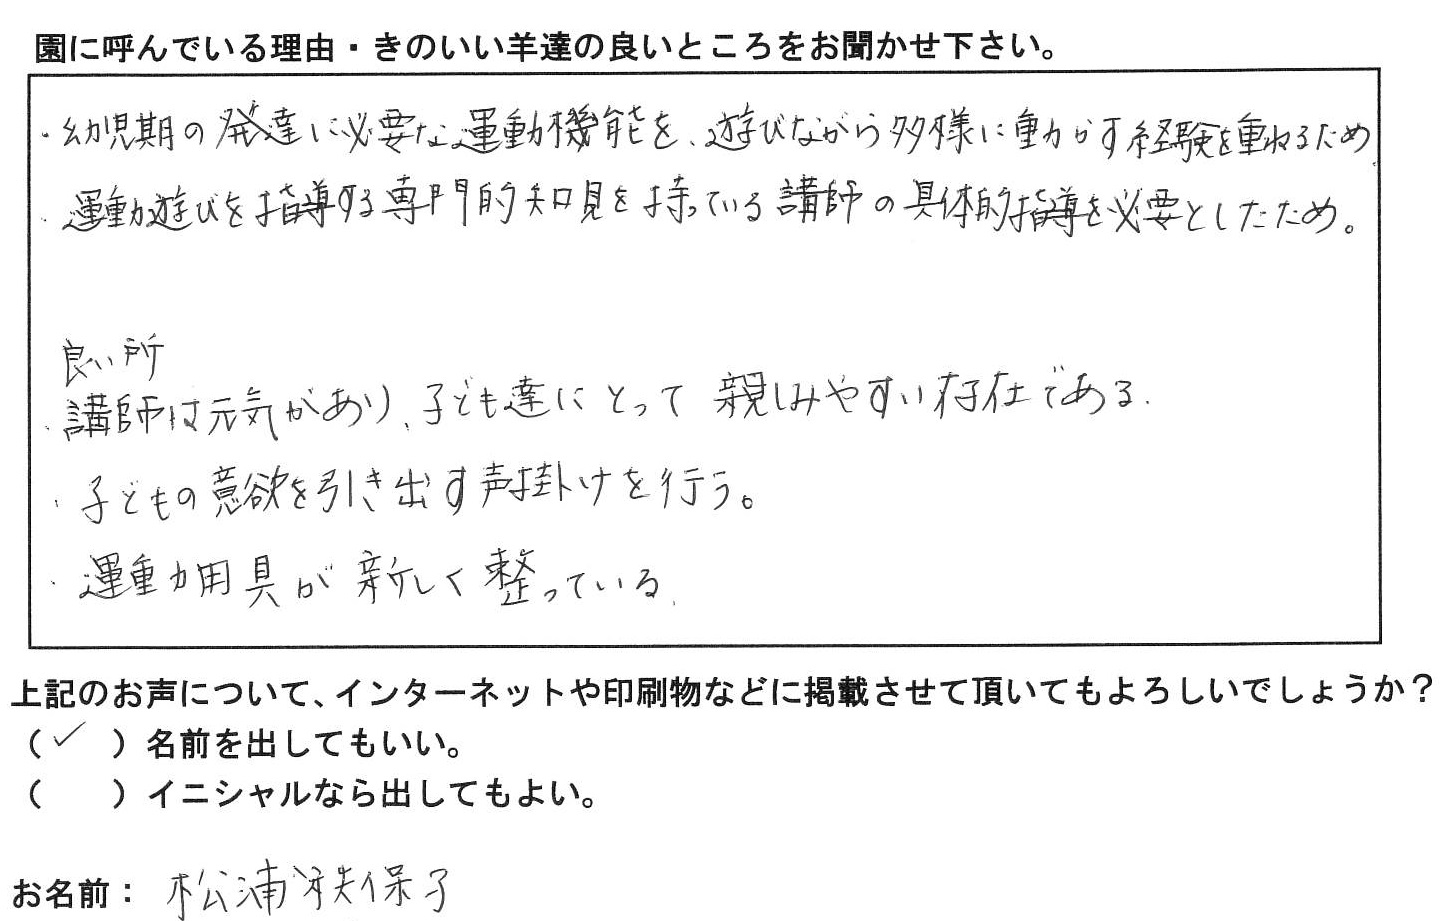 園に呼んでいる理由・きのいい羊達の良いところをお聞かせ下さい。
・幼児期の発達に必要な運動機能を、遊びながら多様に動かす経験を重ねるため
・運動遊びを指導する専門的知見を持っている講師の具体的指導を必要としたため。
良い所
・講師は元気があり、子ども達にとって親しみやすい存在である.
・子どもの意欲を引き出す声掛けを行う。
・運動用具が新しく整っている.
上記のお声について、インターネットや印刷物などに掲載させて頂いてもよろしいでしょうか？
（✓　）名前を出してもいい。
（　　）イニシャルなら出してもよい。
お名前： 松浦 保子